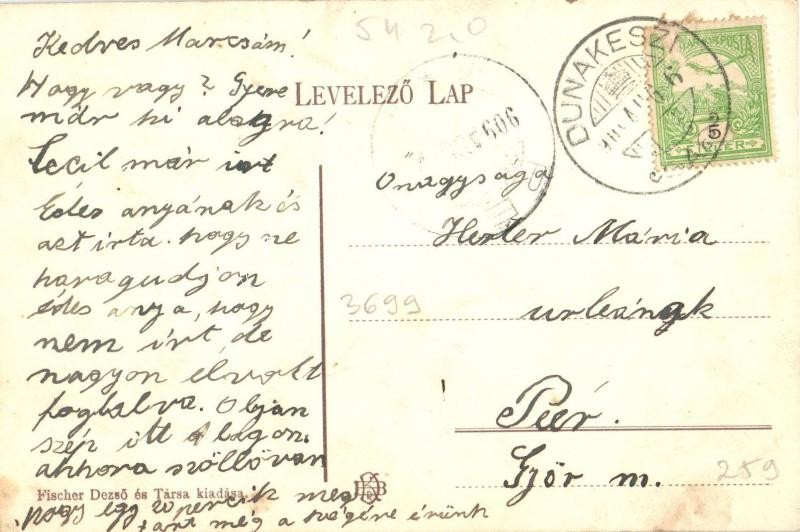 Kedves Marcsám!
Hogy vagy? Gyere
már ki alagra!
Cecil már irt
Édes anyának és
azt irta hogy ne
haragudjon
édes anya, hogy
nem irt, de
nagyon el volt
foglalva. Olyan
szép itt Alagon.
akkora szöllő van
hogy egy 20 percik meg
tart még a végére érünk
LEVELEZŐ LAP
5420
DUNAKESZI
MAGYAR KIR. POSTA
5
FILLÉR
909
Önagysága
Herler Mária
urleánynak
Peér.
Győr m.
3699
259
Fischer Dezső és Társa kiadása.